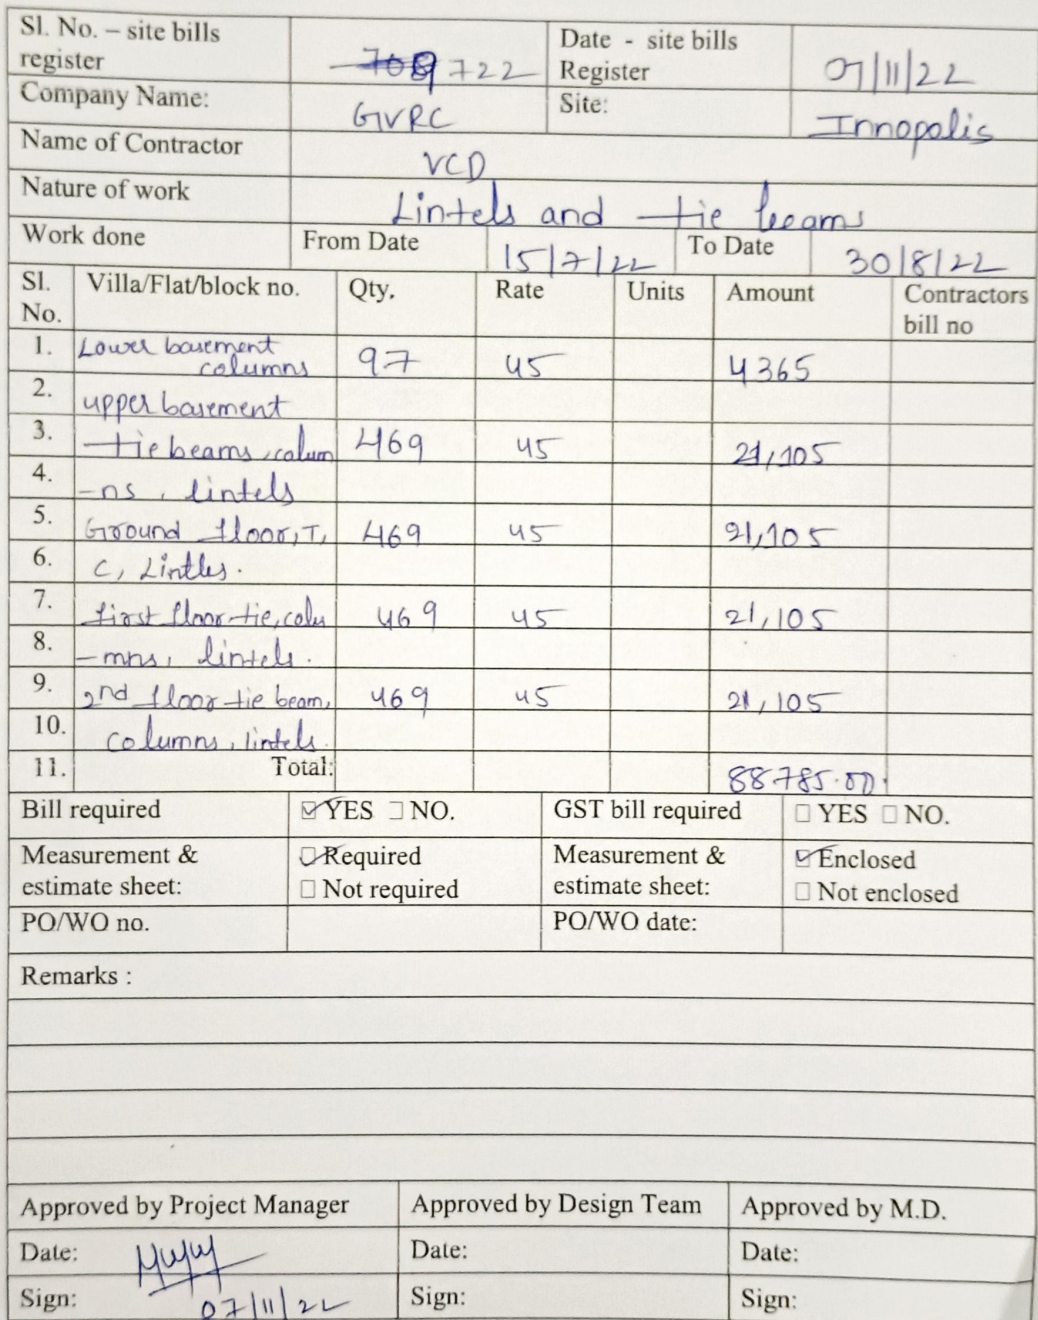 Sl. No. – site bills register 722 Date - site bills Register 07/11/22
Company Name: GVRC Site: Innopolis
Name of Contractor VCD
Nature of work Lintels and tie beams
Work done From Date 15/7/22 To Date 30/8/22
Sl. No. Villa/Flat/block no. Qty. Rate Units Amount Contractors bill no
1. Lower basement columns 97 45 4365
2. upper basement
3. tie beams, colum 469 45 21,105
4. -ns, lintels
5. Ground floor, T, 469 45 21,105
6. C, Lintles.
7. first floor tie, colu 469 45 21,105
8. -mns, lintels.
9. 2nd floor tie beam, 469 45 21,105
10. columns, lintels.
11. Total: 88785.00.
Bill required ☑ YES ☐ NO. GST bill required ☐ YES ☐ NO.
Measurement & estimate sheet: ☑ Required ☐ Not required Measurement & estimate sheet: ☑ Enclosed ☐ Not enclosed
PO/WO no. PO/WO date:
Remarks :
Approved by Project Manager Approved by Design Team Approved by M.D.
Date: Date: Date:
Sign: 07/11/22 Sign: Sign: